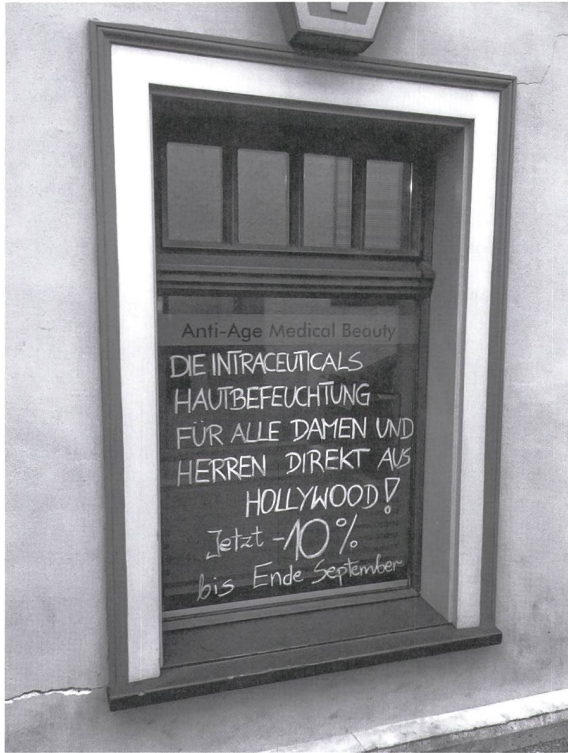 Anti-Age Medical Beauty
DIE INTRACEUTICALS
HAUTBEFEUCHTUNG
FÜR ALLE DAMEN UND
HERREN DIREKT AUS
HOLLYWOOD!
Jetzt -10%
bis Ende September